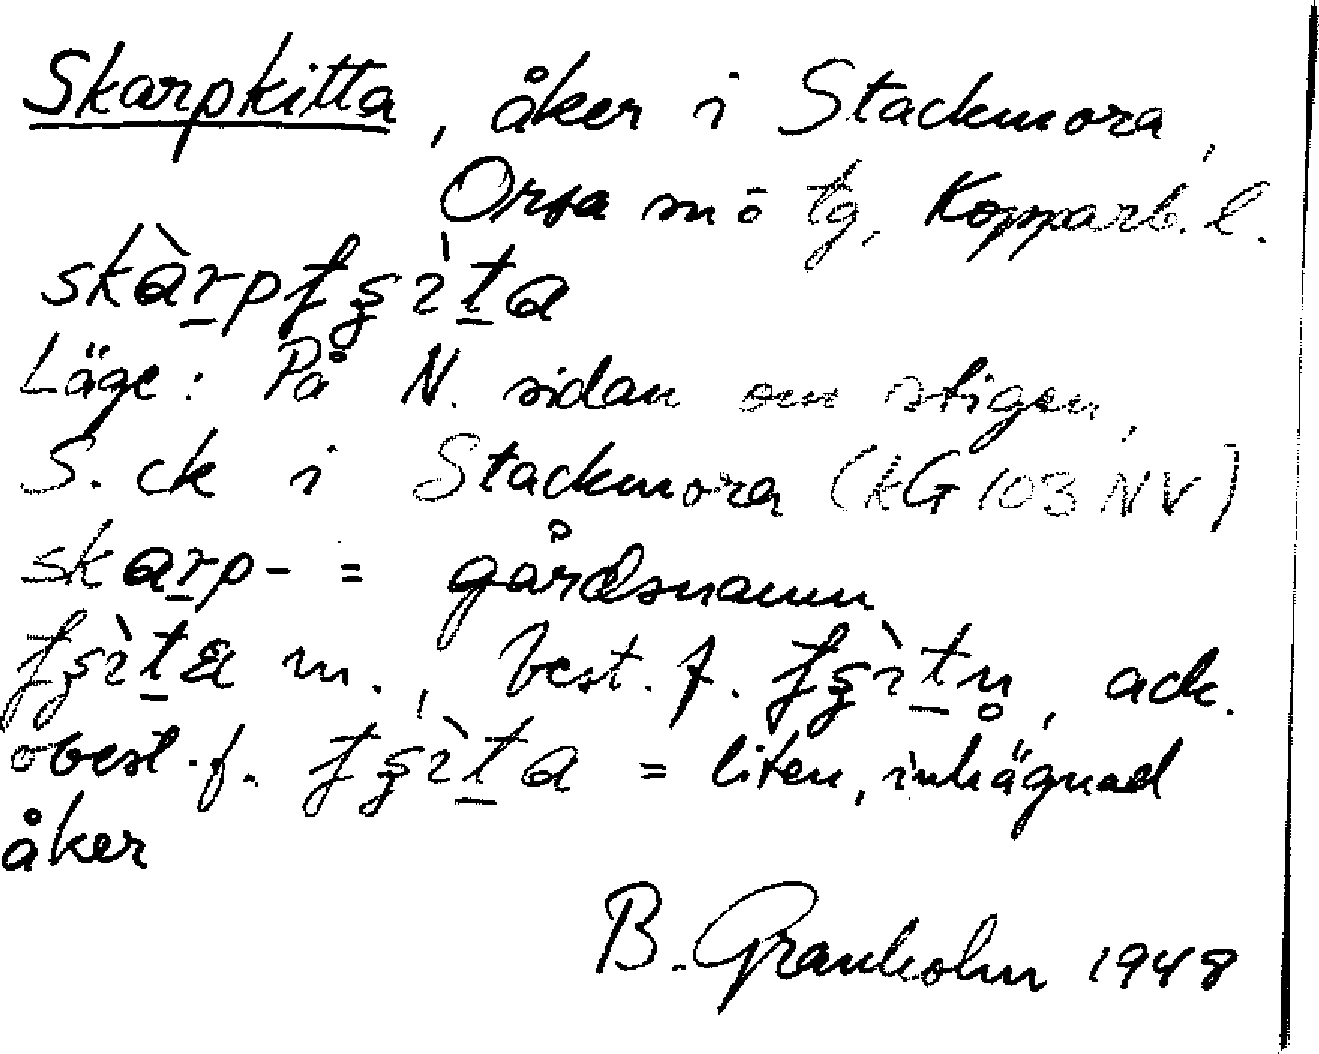 Skarpkitta, åker i Stackmora,
Orsa sn ö tg, Kopparb. l.
skàrpʄşìta
Läge: På N. sidan om stigen,
S. ck i Stackmora (kG 103 NV)
skarp- = gårdsnamn
ʄşìta m., best. f. ʄşìtn̥, ack.
obest. f. ʄşìta = liten, inhägnad
åker
B. Granholm 1948